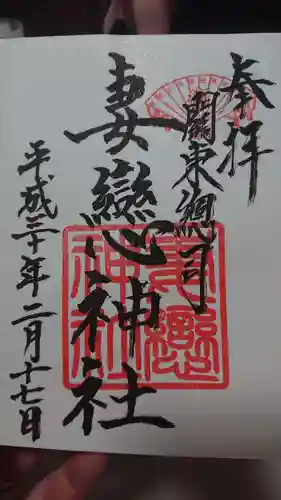 奉拝
關東總司
妻戀神社
平成三十年二月十七日
妻戀
神社